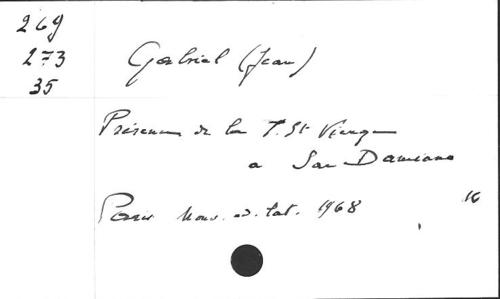 269
273
35
Gabriel (Jean)
Présence de la T. St Vierge
a San Damiano
Paris Nouv. ed. lat. 1968
16